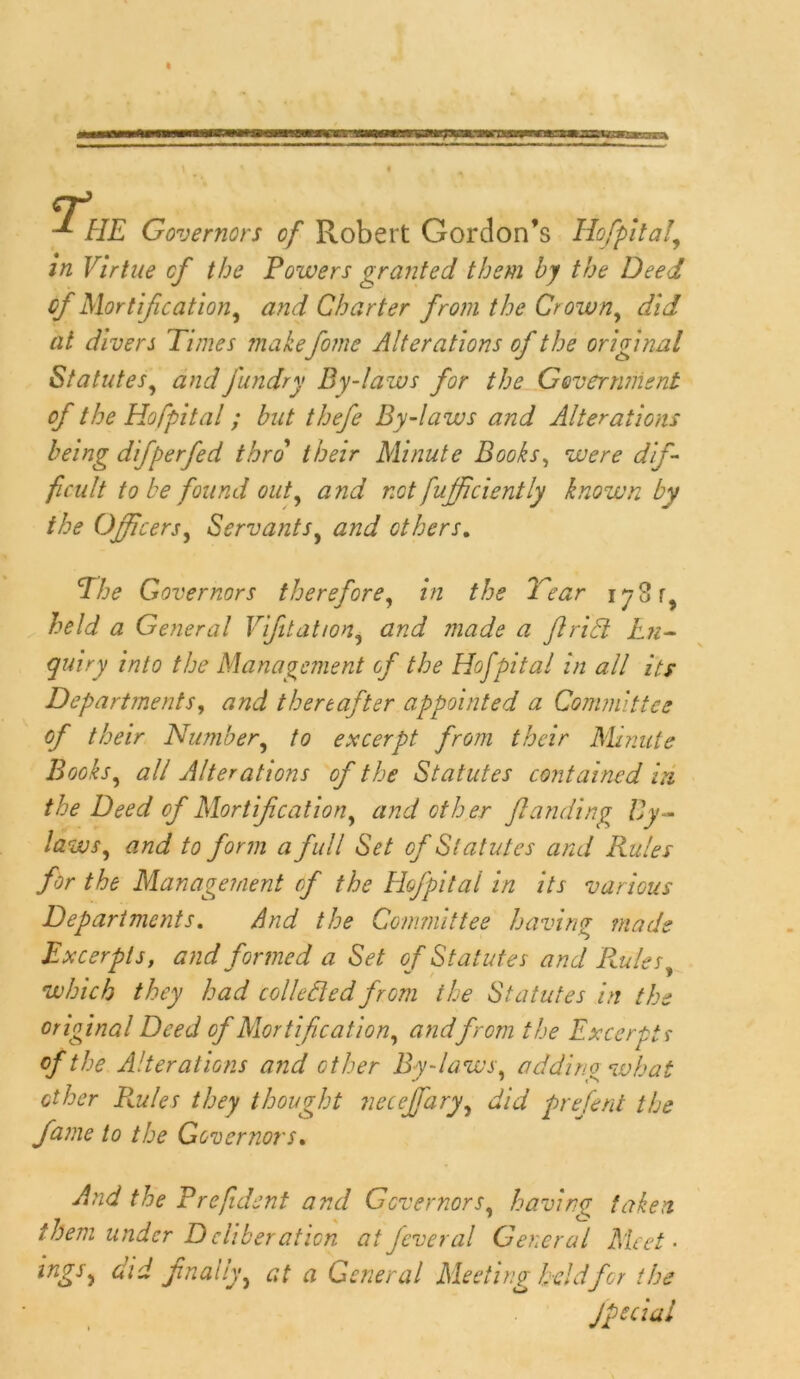 THE Governors of Robert Gordon's Hoſpital,
in Virtue of the Powers granted them by the Deed
of Mortification, and Charter from the Crown, did
at divers Times make ſome Alterations of the original
Statutes, and ſundry By-laws for the Government
of the Hoſpital; but theſe By-laws and Alterations
being diſperſed thro' their Minute Books, were diſ-
ficult to be found out, and not ſufficiently known by
the Officers, Servants, and others.
The Governors therefore, in the Year 1781,
held a General Viſitation, and made a ſtrict En-
quiry into the Management of the Hoſpital in all its
Departments, and thereafter appointed a Committee
of their Number, to excerpt from their Minute
Books, all Alterations of the Statutes contained in
the Deed of Mortification, and other ſtanding By-
laws, and to form a full Set of Statutes and Rules
for the Management of the Hoſpital in its various
Departments. And the Committee having made
Excerpts, and formed a Set of Statutes and Rules,
which they had collected from the Statutes in the
original Deed of Mortification, and from the Excerpts
of the Alterations and other By-laws, adding what
other Rules they thought neceſſary, did preſent the
ſame to the Governors.
And the Preſident and Governors, having taken
them under Deliberation at ſeveral General Meet-
ings, did finally, at a General Meeting held for the
ſpecial